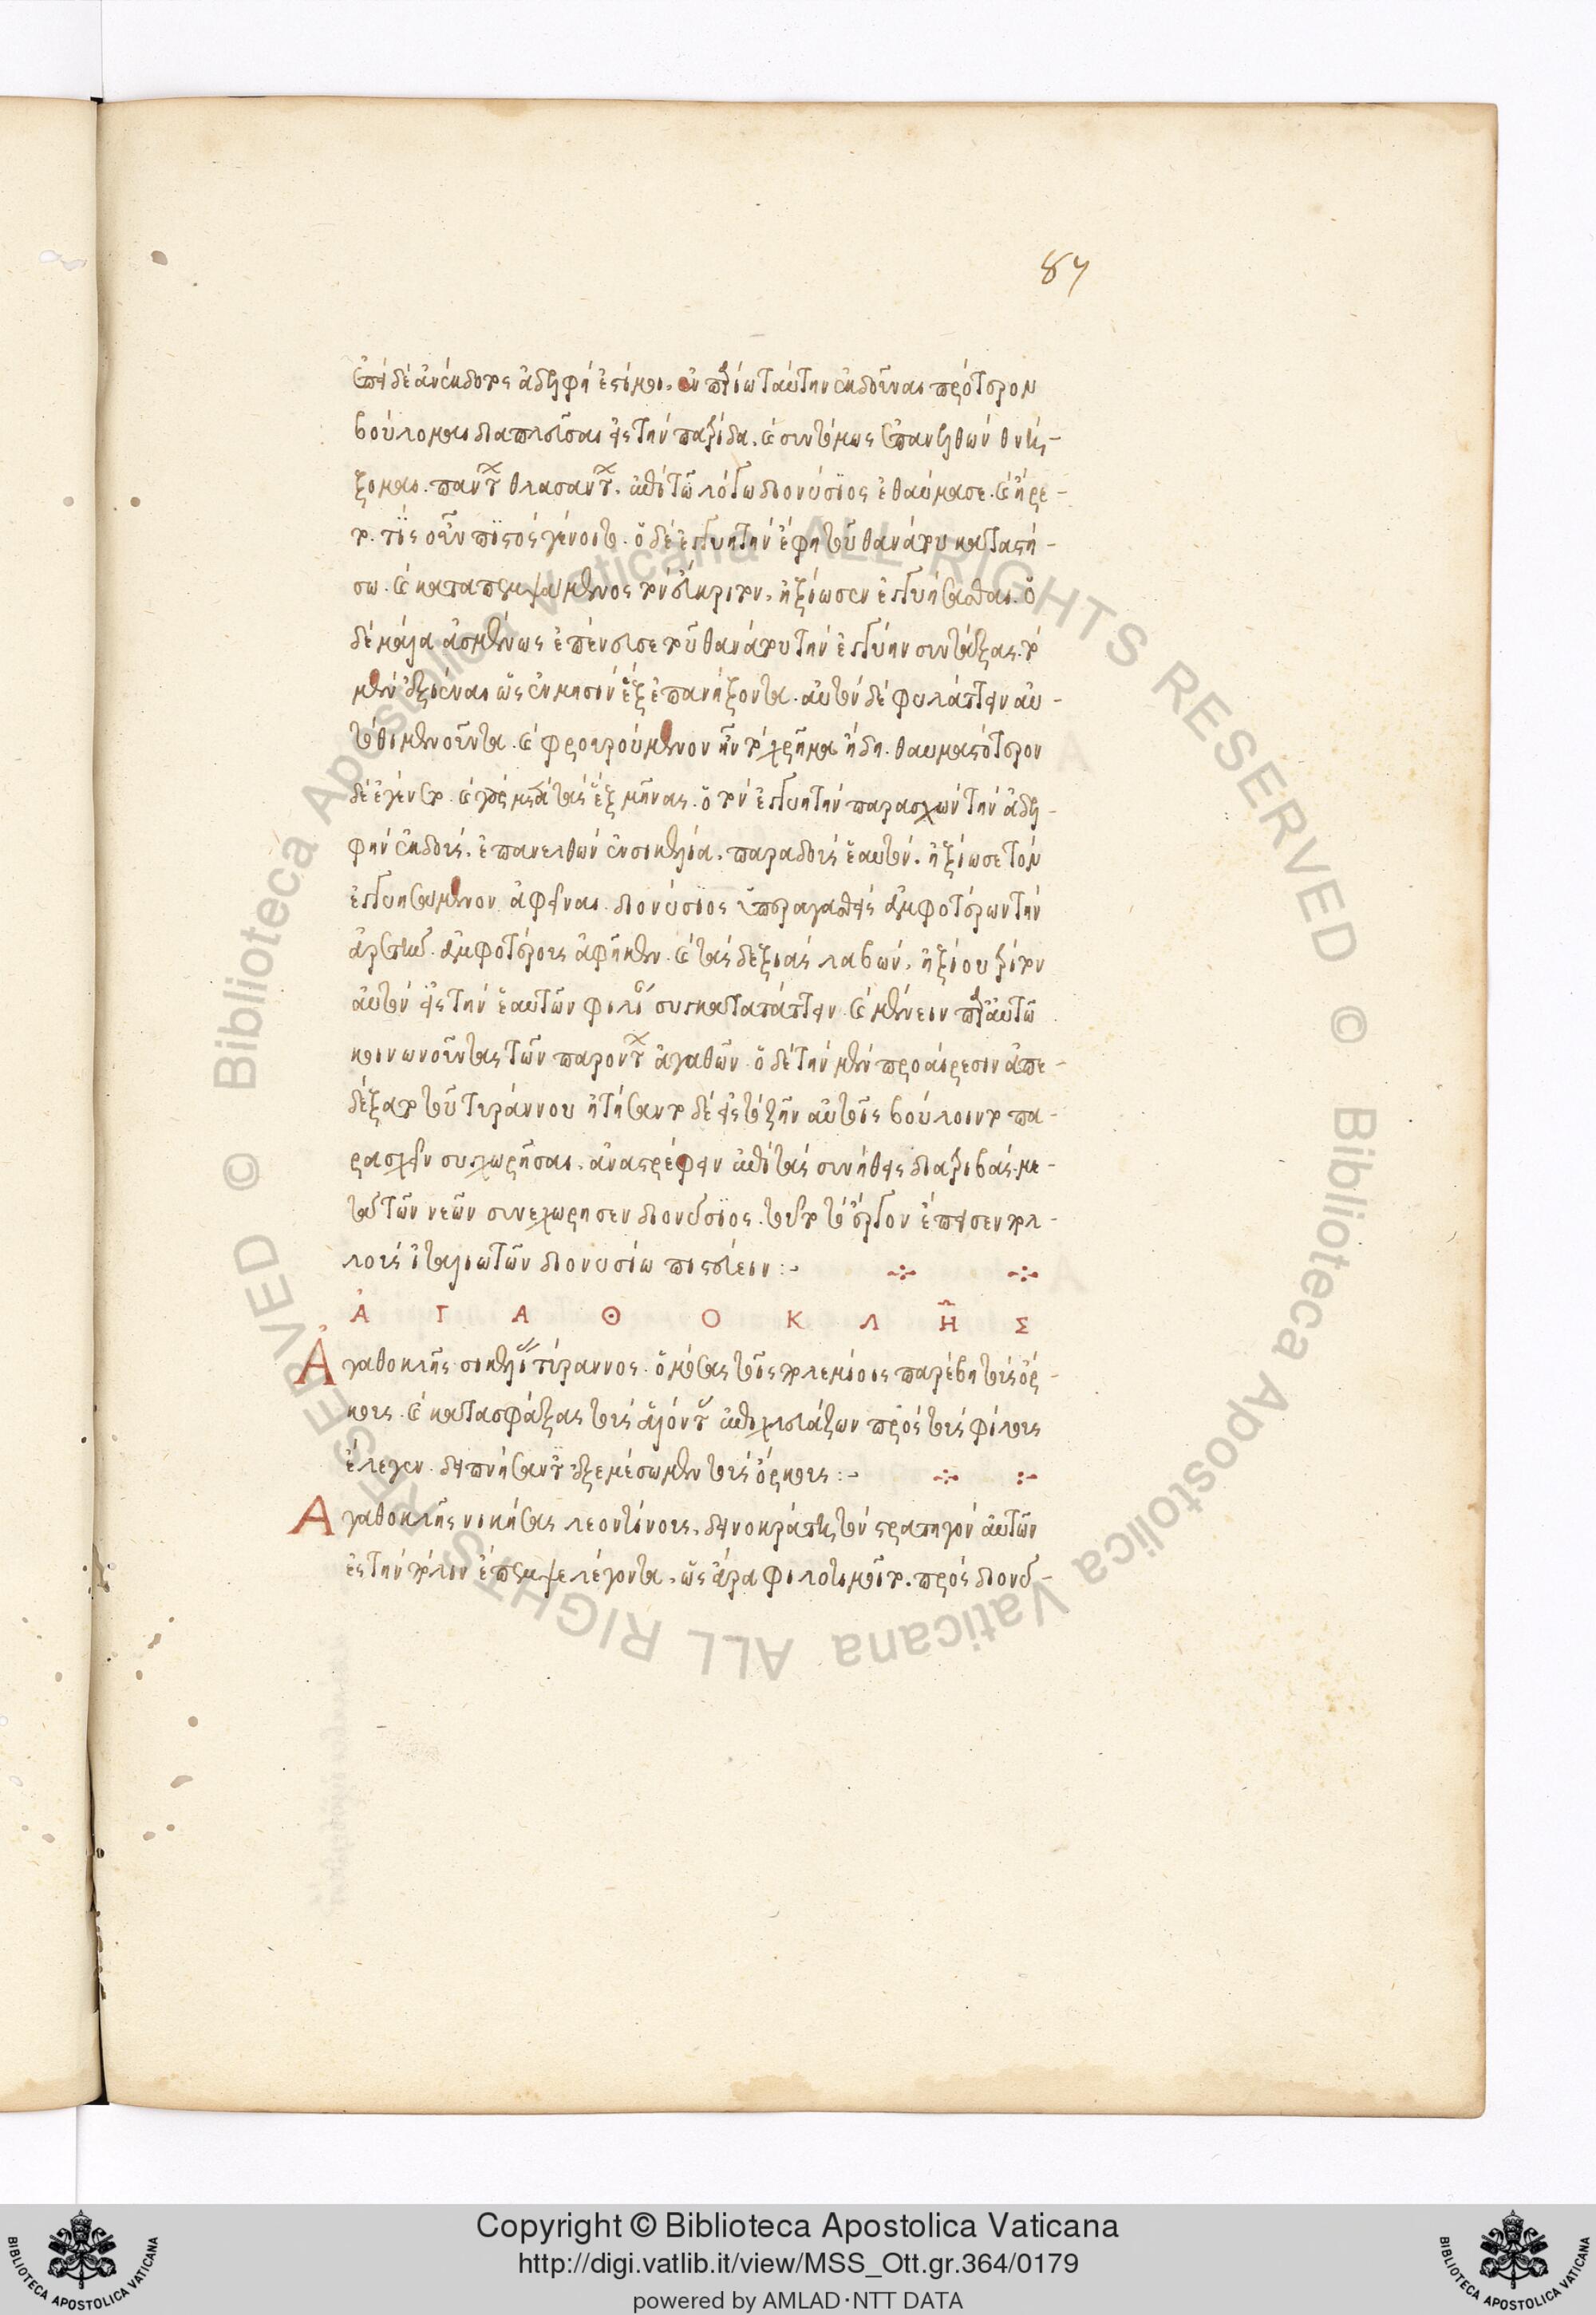 87
ἐπεὶ δὲ ἀνέκδοτος ἀδελφή ἐστί μοι. ἣν πρίω ταύτην ἐκδοῦναι πρότερον
βούλομαι διαπλεῦσαι εἰς τὴν πατρίδα. καὶ συντόμως ἐπανελθὼν θνή-
ξομαι. πάντων γελασάντων. ἐπὶ τῷ λόγῳ διονύσιος ἐθαύμασε. καὶ ἤρε-
το. τίς οὖν πιστὸς γένοιτο. ὁ δὲ ἐγγυητὴν ἔφη τοῦ θανάτου καταστή-
σω. καὶ καταπεμψάμενος τὸν εὔκριτον. ἠξίωσεν ἐγγυήσασθαι. ὁ
δὲ μάλα ἀσμένως ἐπένευσε τοῦ θανάτου τὴν ἐγγύην συντάξας. τὸ
μὲν ἐξιέναι ὡς ἐν μησὶν ἓξ ἐπανήξοντα. αὐτὸν δὲ φυλάττειν αὐ-
τόθι μενοῦντα. καὶ φρουρούμενον ἦν τὸ χρῆμα ἤδη. θαυμαστότερον
δὲ ἐγένετο. καὶ γὰρ μετὰ τοὺς ἓξ μῆνας. ὁ τὸν ἐγγυητὴν παρασχὼν τὴν ἀδελ-
φὴν ἐκδοὺς. ἐπανελθὼν ἐν σικελία. παραδοὺς ἑαυτόν. ἠξίωσε τὸν
ἐγγυησάμενον ἀφεῖναι. διονύσιος ὑπεραγασθεὶς ἀμφοτέρων τὴν
ἀρετὴν. ἀμφοτέρους ἀφῆκεν. καὶ τὰς δεξιὰς λαβών. ἠξίου τρίτον
αὐτὸν εἰς τὴν ἑαυτῶν φιλίαν συγκατατάττειν. καὶ μένειν παρ' αὐτῷ
κοινωνοῦντας τῶν παρόντων ἀγαθῶν. ὁ δὲ τὴν μὲν προαίρεσιν ἀπε-
δέξατο τοῦ τυράννου ᾐτήσαντο δὲ εἰς τὸ ζῆν αὐτοῖς βούλοιντο πα-
ρασχεῖν συγχωρῆσαι. ἀναστρέφειν ἐπὶ τὰς συνήθεις διατριβάς. με-
τὰ τῶν νεῶν συνεχώρησεν διονύσιος. τοῦτο τὸ ἔργον ἔπεισεν πολ-
λοὺς ἰταλιωτῶν διονυσίω πιστεύειν :-
ἈΓΑΘΟΚΛΗ͂Σ
Ἀγαθοκλῆς σικελίας τύραννος. ὀμόσας τοῖς πολεμίοις παρέβη τοὺς ὅρ-
κους. καὶ κατασφάξας τοὺς ἁλόντας ἐπιχλευάζων πρὸς τοὺς φίλους
ἔλεγεν. δειπνήσαντες ἐξεμέσωμεν τοὺς ὅρκους :-
Ἀγαθοκλῆς νικήσας λεοντίνους. δεινοκράτην τὸν στρατηγὸν αὐτῶν
ἐς τὴν πόλιν ἔπεμψε λέγοντα. ὡς ἄρα φιλοτιμοῖτο. πρὸς διονύ-
Copyright © Biblioteca Apostolica Vaticana
http://digi.vatlib.it/view/MSS_Ott.gr.364/0179
powered by AMLAD·NTT DATA
© Biblioteca Apostolica Vaticana ALL RIGHTS RESERVED
© Biblioteca Apostolica Vaticana ALL RIGHTS RESERVED
BIBLIOTECA APOSTOLICA VATICANA
BIBLIOTECA APOSTOLICA VATICANA